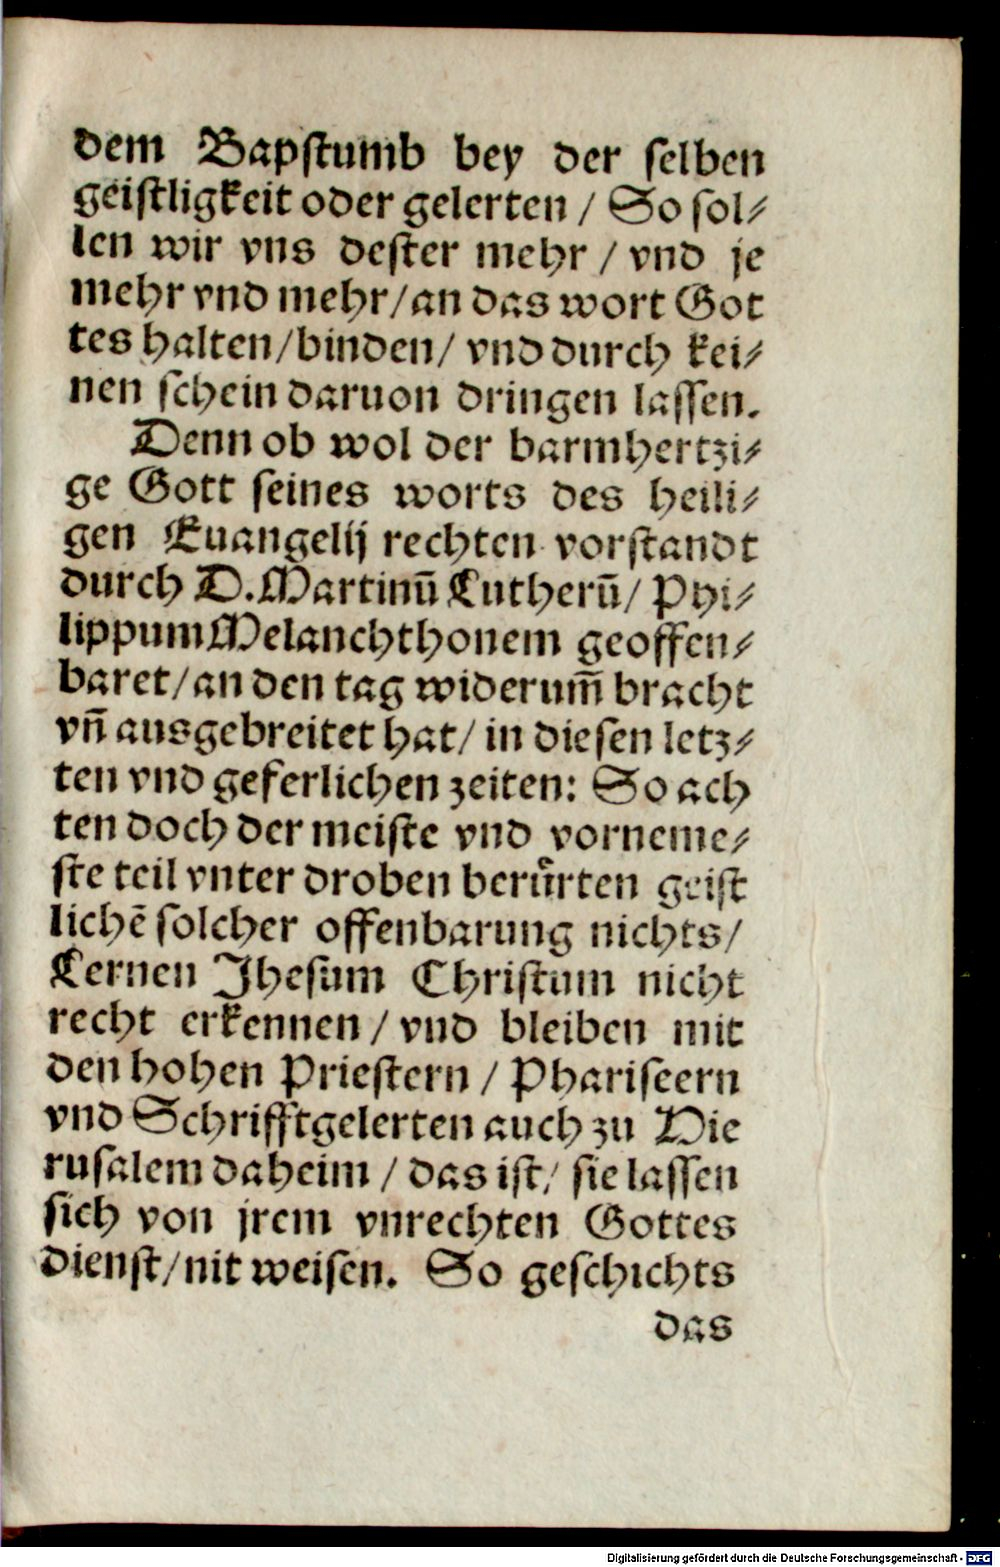 dem Bapſtumb bey der ſelben
geiſtligkeit oder gelerten / So ſol⸗
len wir vns deſter mehr / vnd je
mehr vnd mehr/an das wort Got
tes halten/binden/ vnd durch kei⸗
nen ſchein daruon dringen laſſen.
Denn ob wol der barmhertzi⸗
ge Gott ſeines worts des heili⸗
gen Euangelij rechten vorſtandt
durch D.Martinū Lutherū/ Phi⸗
lippum Melanchthonem geoffen⸗
baret/an den tag widerum̄ bracht
vn̄ ausgebreitet hat/ in dieſen letz⸗
ten vnd geferlichen zeiten: So ach
ten doch der meiſte vnd vorneme⸗
ſte teil vnter droben berůrten geiſt
lichē ſolcher offenbarung nichts/
Lernen Jheſum Chriſtum nicht
recht erkennen / vnd bleiben mit
den hohen Prieſtern / Phariſeern
vnd Schrifftgelerten auch zu Hie
ruſalem daheim / das iſt/ ſie laſſen
ſich von jrem vnrechten Gottes
dienſt/nit weiſen. So geſchichts
das
Digitalisierung gefördert durch die Deutsche Forschungsgemeinschaft - DFG